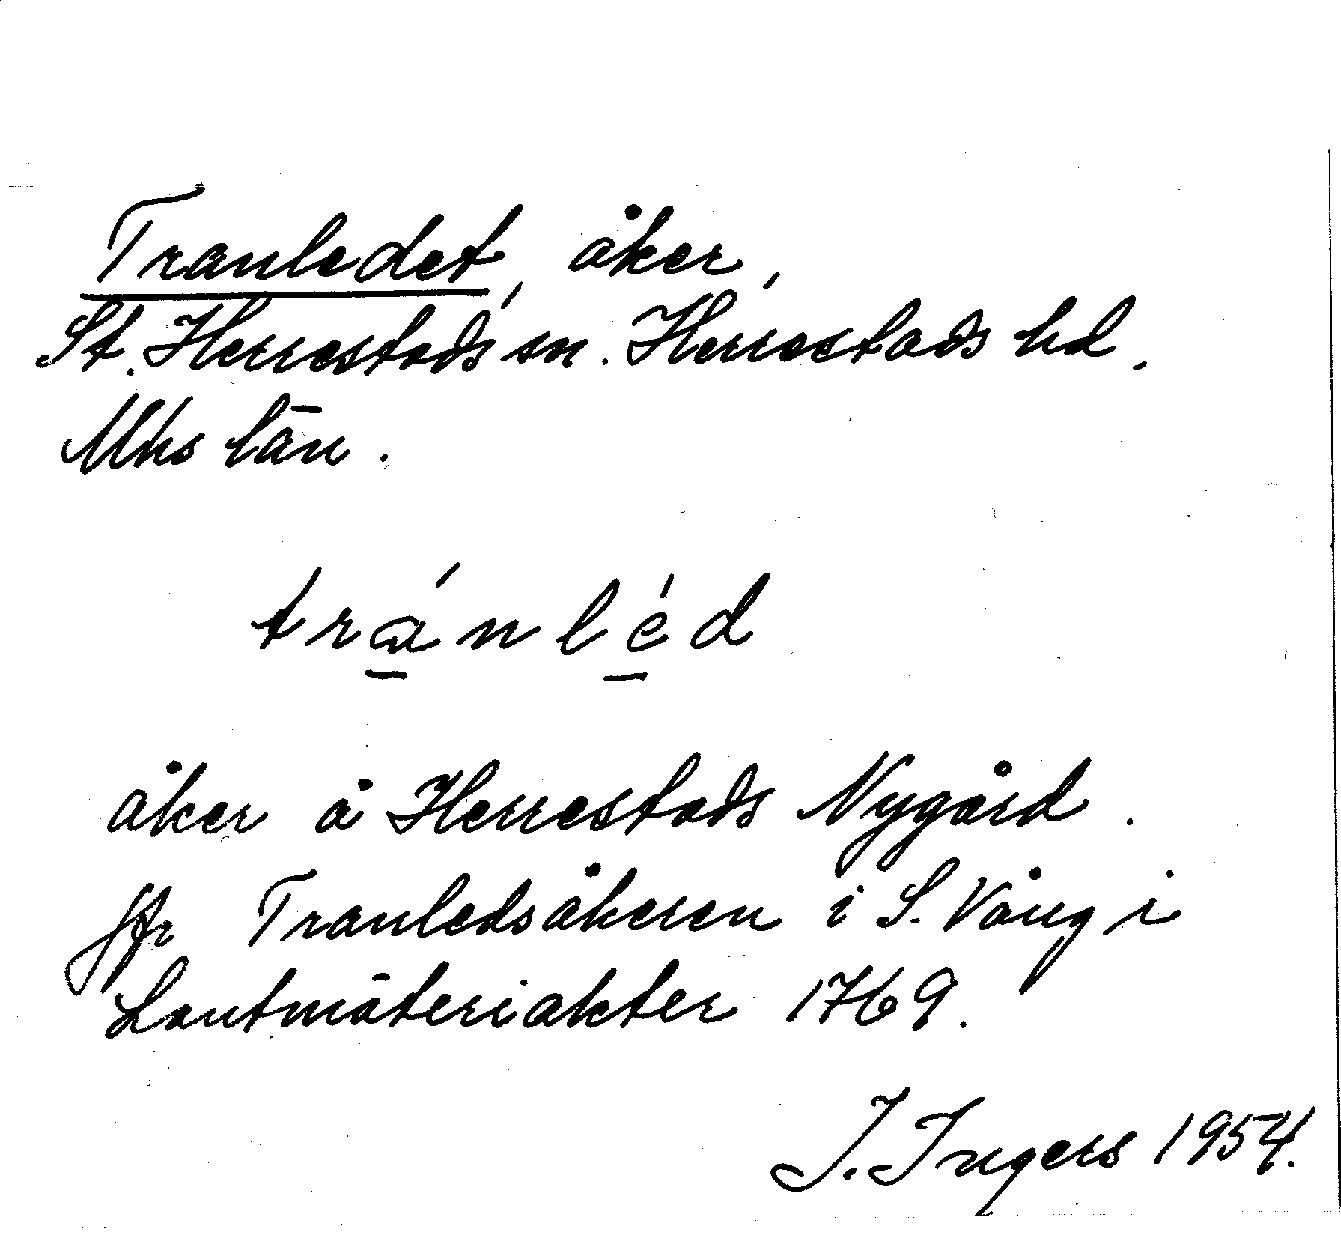 Tranledet, åker,
St. Herrestads sn. Herrestads hd.
Mhs län.
tránléd
åker å Herrestads Nygård.
Jfr Tranledsåkeren i S. Vång i
Lantmäteriakter 1769.
I. Ingers 1954.